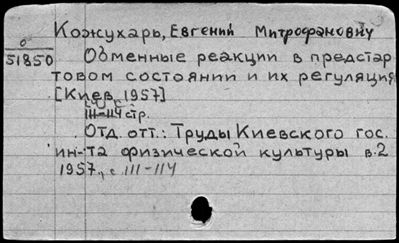 Кожухарь, Евгений Митрофанович
0
51850
Обменные реакции в предстар-
товом состоянии и их регуляция
[Киев, 1957]
с. 111-114 стр.
Отд. отт.: Труды Киевского гос.
ин-та физической культуры в.2
1957, с. 111-114